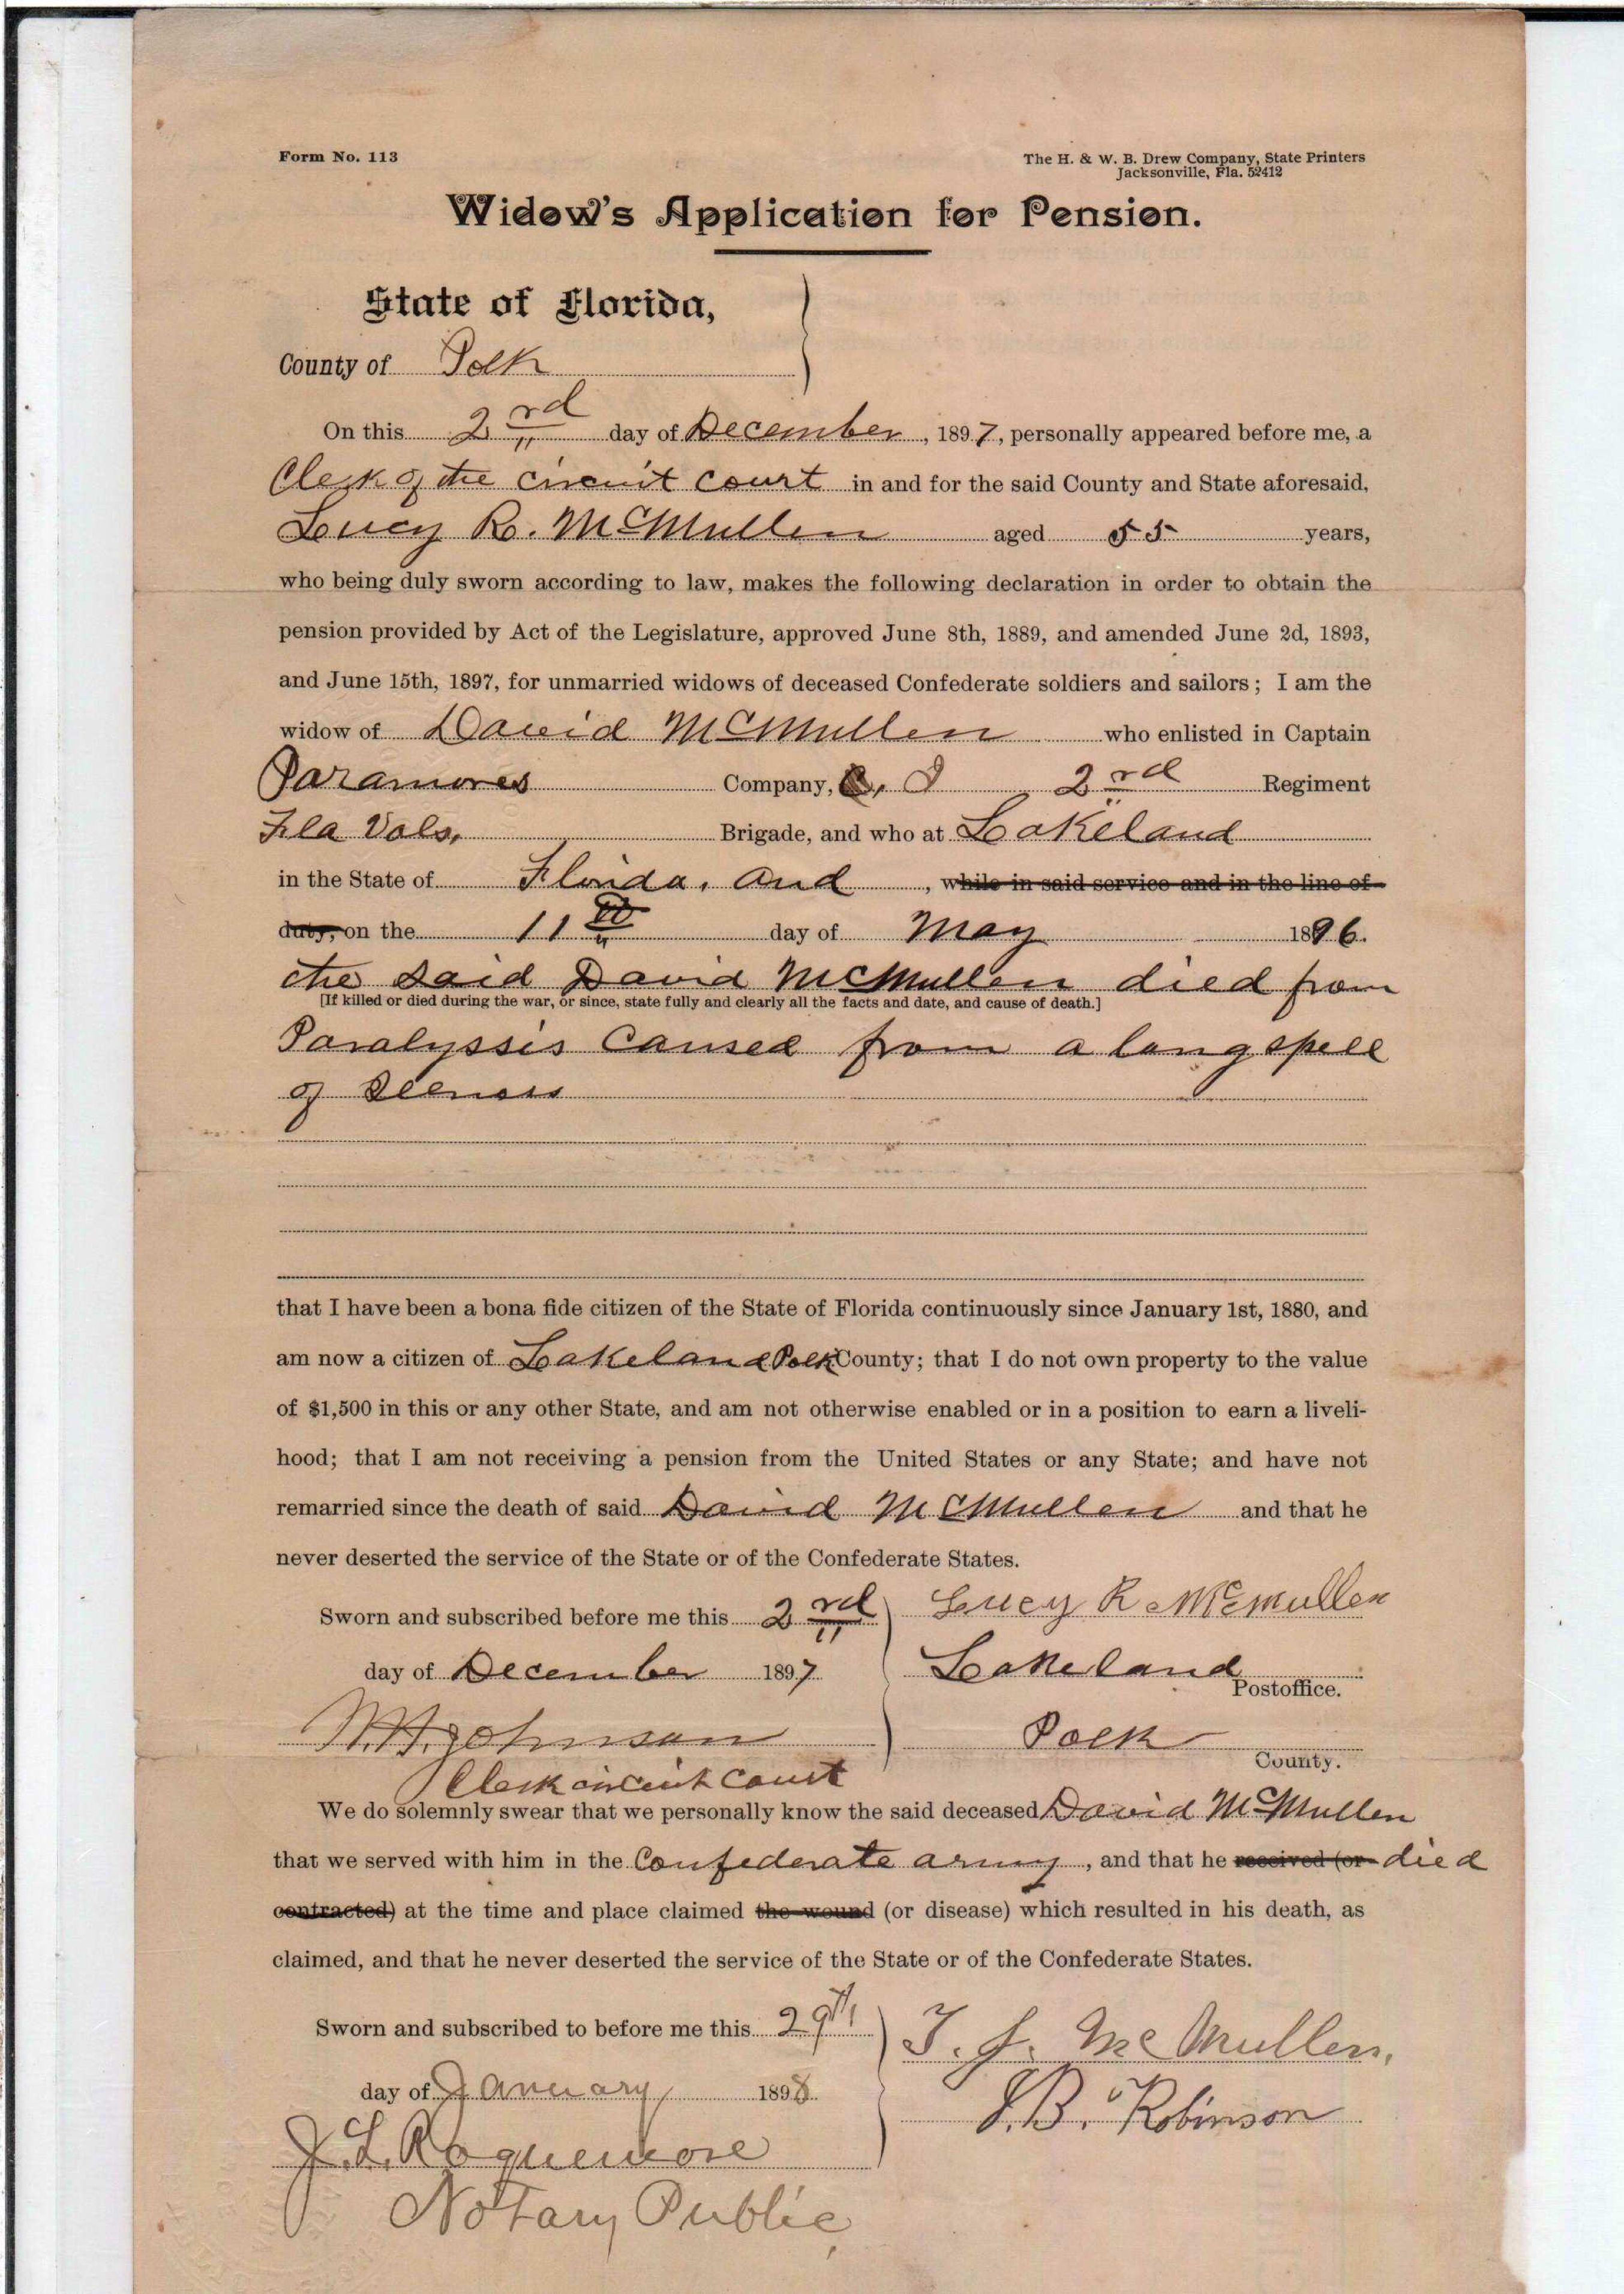 Form No. 113
The H. & W. B. Drew Company, State Printers
Jacksonville, Fla. 52412
Widow's Application for Pension.
State of Florida,
County of Polk
On this 2rd day of December, 1897, personally appeared before me, a
Clerk of the circuit court in and for the said County and State aforesaid,
Lucy R. McMullen aged 55 years,
who being duly sworn according to law, makes the following declaration in order to obtain the
pension provided by Act of the Legislature, approved June 8th, 1889, and amended June 2d, 1893,
and June 15th, 1897, for unmarried widows of deceased Confederate soldiers and sailors; I am the
widow of David McMullen who enlisted in Captain
Paramores Company, I 2rd Regiment
Fla Vols, Brigade, and who at Lakeland
in the State of Florida, and, while in said service and in the line of
duty, on the 11th day of May 1896.
the said David McMullen died from
[If killed or died during the war, or since, state fully and clearly all the facts and date, and cause of death.]
Paralyssis Caused from a long spell
of Illness
that I have been a bona fide citizen of the State of Florida continuously since January 1st, 1880, and
am now a citizen of Lakeland Polk County; that I do not own property to the value
of $1,500 in this or any other State, and am not otherwise enabled or in a position to earn a liveli-
hood; that I am not receiving a pension from the United States or any State; and have not
remarried since the death of said David McMullen and that he
never deserted the service of the State or of the Confederate States.
Sworn and subscribed before me this 2rd Lucy R McMullen
day of December 1897 Lakeland Postoffice.
W.H. Johnson Polk County.
Clerk circuit court
We do solemnly swear that we personally know the said deceased David McMullen
that we served with him in the Confederate army, and that he received (or died
contracted) at the time and place claimed the wound (or disease) which resulted in his death, as
claimed, and that he never deserted the service of the State or of the Confederate States.
Sworn and subscribed to before me this 29th T. J. McMullen.
day of January 1898 J.B. Robinson
J.L. Roquemore
Notary Public